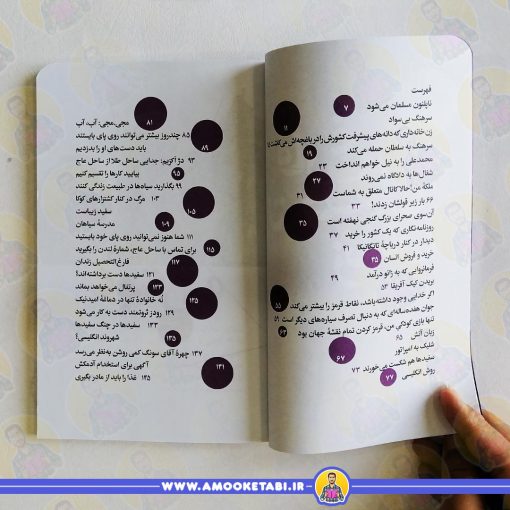 فهرست
ناپلئون مسلمان می‌شود ۷
سرهنگ بی‌سواد ۱۱
زن خانه‌داری که دانه‌های پیشرفت کشورش را در باغچه‌اش می‌کاشت
سرهنگ به سلطان حمله می‌کند ۱۹
محمدعلی را به نیل خواهم انداخت ۲۳
شغال‌ها به دادگاه نمی‌روند ۲۷
ملکهٔ من! حالا کانال متعلق به شماست ۳۱
۶۶ بار زیر قولشان زدند! ۳۳
آن‌سوی صحرای بزرگ گنجی نهفته است ۳۵
روزنامه‌نگاری که یک کشور را خرید ۳۷
دیدار در کنار دریاچهٔ تانگانیکا ۴۱
خرید و فروش انسان ۴۵
فرمانروایی که به زانو درآمد ۴۹
بریدن کیک آفریقا ۵۳
اگر خدایی وجود داشته باشد، نقاط قرمز را بیشتر می‌کند ۵۵
جوان هفده‌ساله‌ای که به دنبال تصرف سیاره‌های دیگر است ۵۹
تنها بازی کودکی من، قرمز کردن تمام نقشهٔ جهان بود ۶۳
زبان آتش ۶۵
شلیک به امپراتور ۶۷
سفیدها هم شکست می‌خورند ۷۳
روش انگلیسی ۷۷
مجی،مجی: آب، آب ۸۱
۸۵ چندروز بیشتر می‌توانند روی پای بایستند
باید دست‌های او را بدزدیم ۸۹
۹۳ دژ آکزیم: جدایی ساحل طلا از ساحل عاج
بیایید کارها را تقسیم کنیم ۹۵
۹۹ بگذارید سیاه‌ها در طبیعت زندگی کنند
مرگ در کنار کشتزارهای کوکا ۱۰۳
سفید زیباست ۱۰۵
مدرسهٔ سپاهان ۱۰۹
۱۱۱ شما هنوز نمی‌توانید روی پای خود بایستید
برای تماس با ساحل عاج، شمارهٔ لندن را بگیرید ۱۱۵
فارغ‌التحصیل زندان ۱۱۷
۱۲۱ سفیدها دست برداشته‌اند!
پرتقال می‌خواهد بماند ۱۲۳
نُه خانوادهٔ تنها در دماغهٔ امیدنیک ۱۲۵
۱۲۹ رودز ثروتمند دست به کار می‌شود
سفیدها در چنگ سفیدها ۱۳۳
شهروند انگلیسی؟ ۱۳۵
۱۳۷ چهرهٔ آقای سونگ کمی روشن به‌نظر می‌رسد
آگهی برای استخدام آدمکش ۱۴۱
۱۴۵ غذا را باید از مادر بگیری
WWW.AMOOKETABI.IR